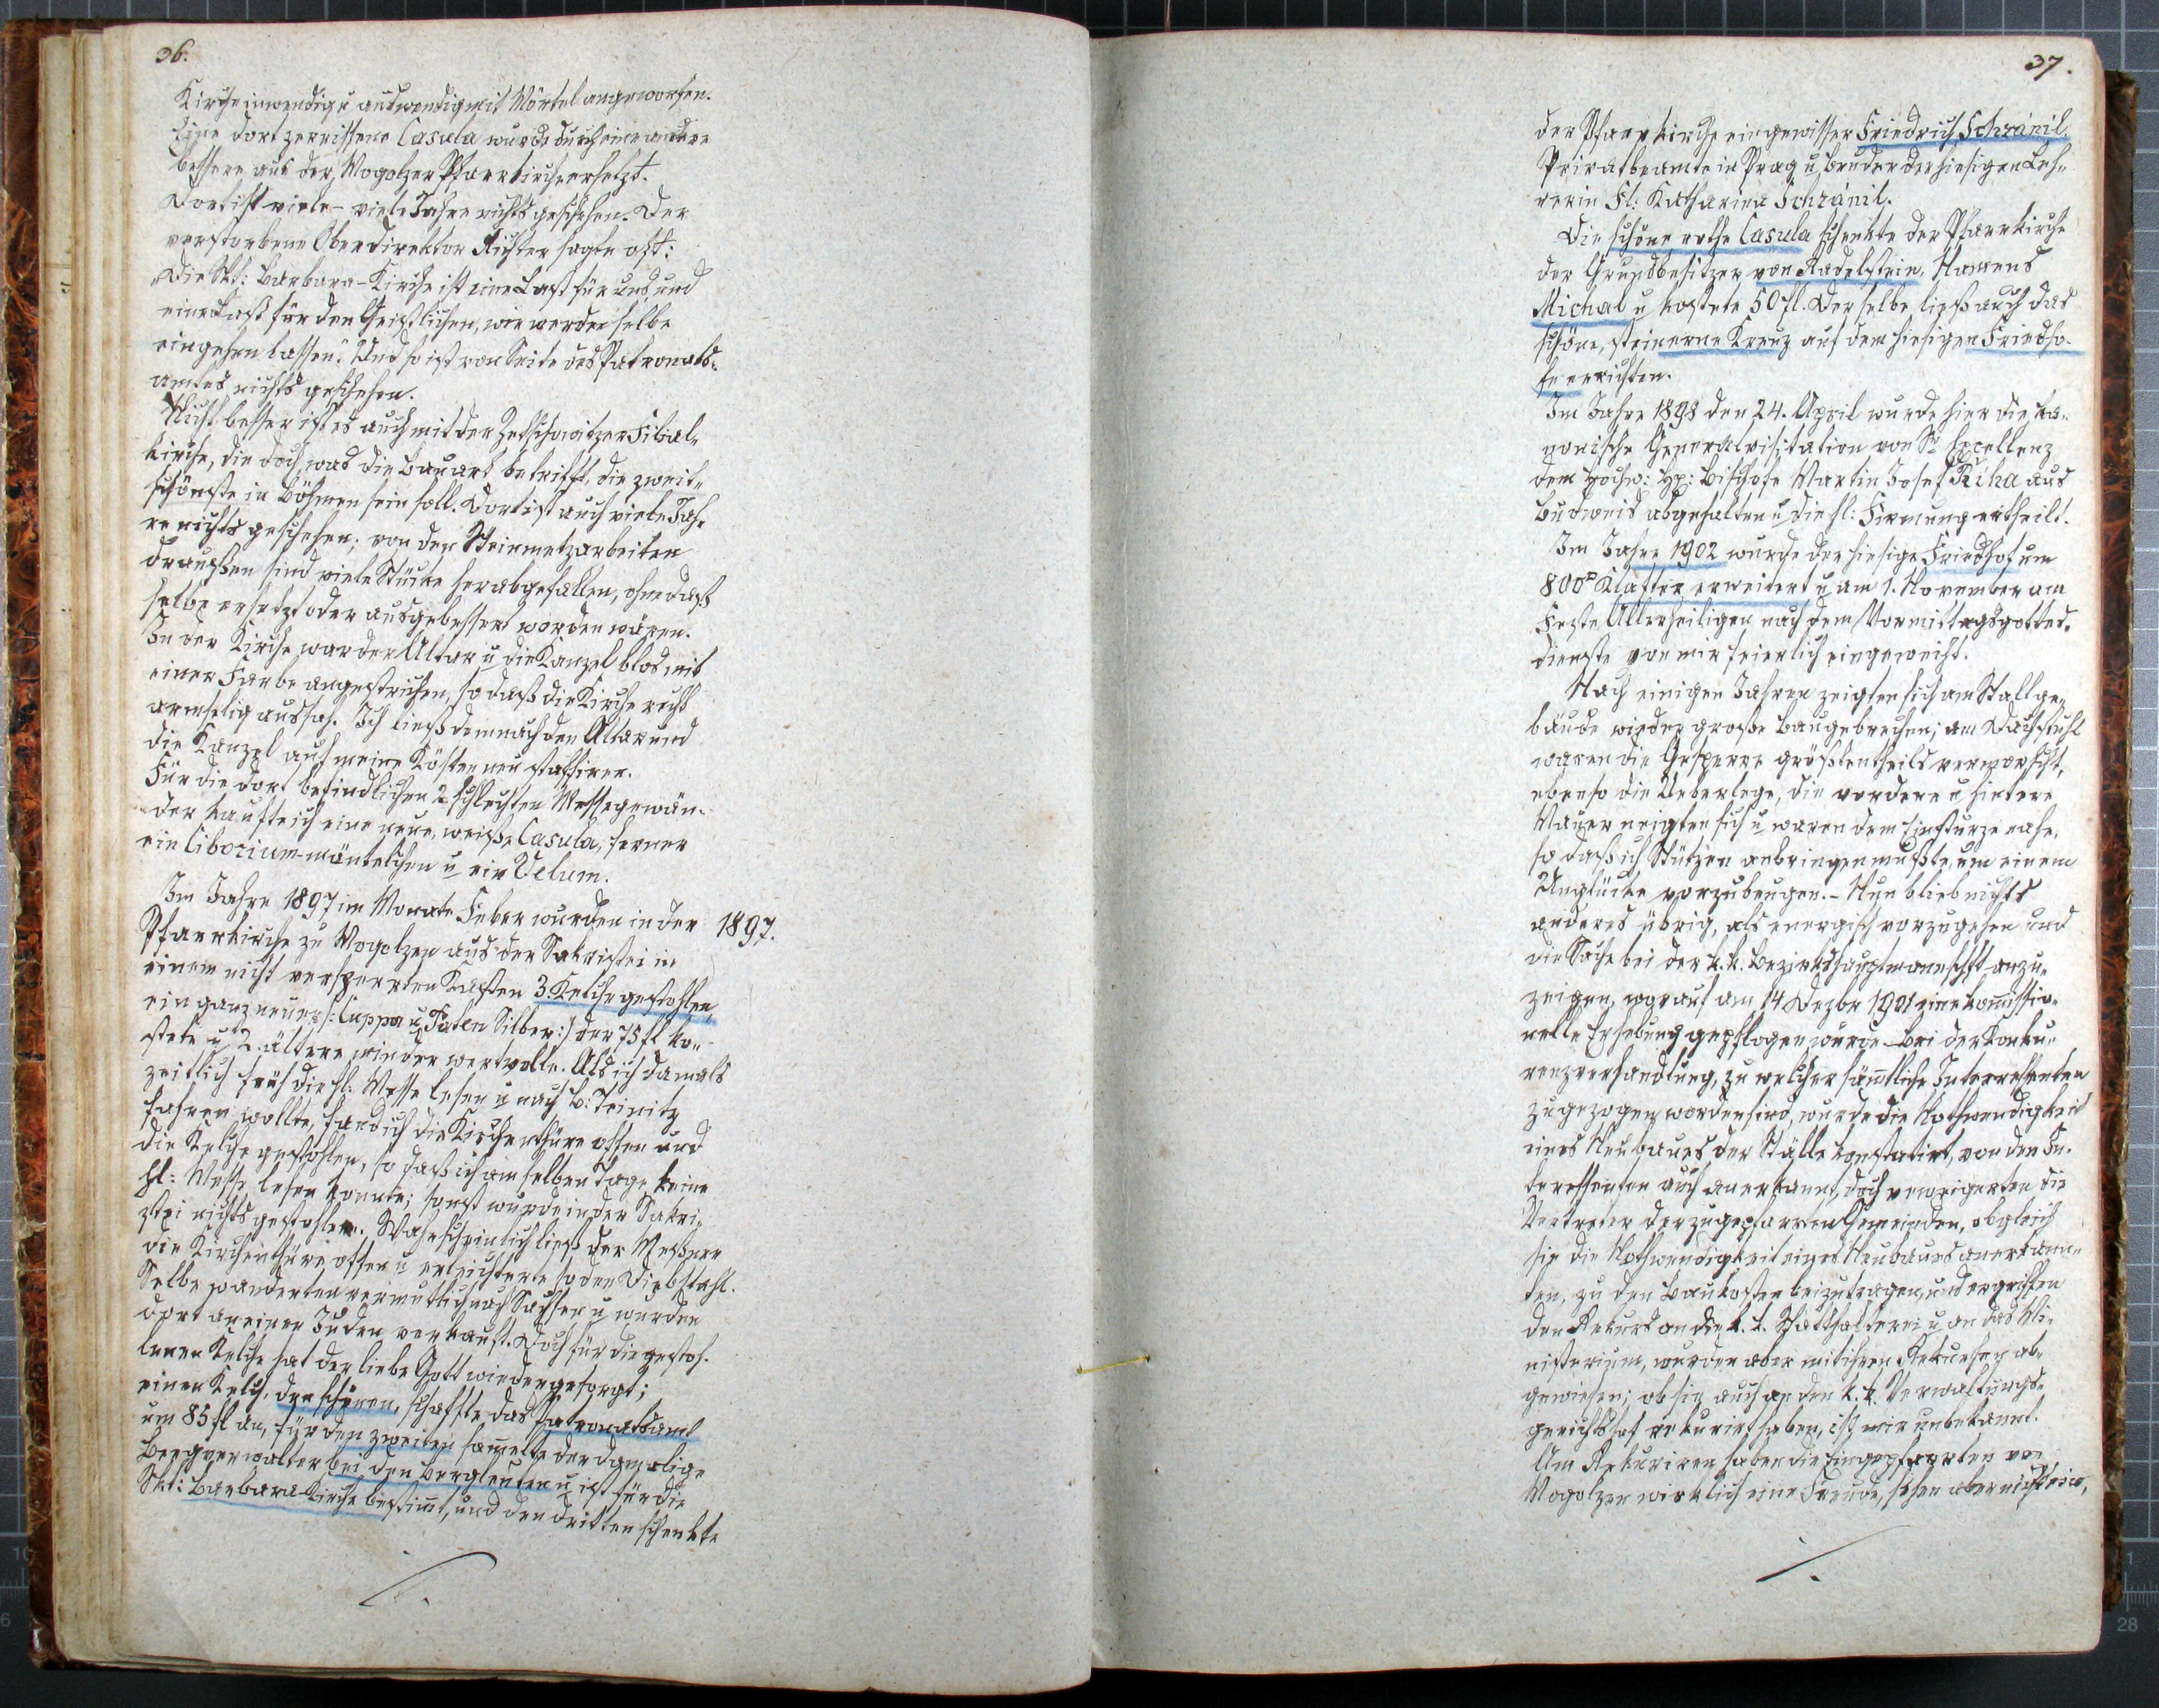 36.
Kirche inwendig u auswendig mit Mörtel angeworfen.
Eine dort zerrissene Casula wurde durch eine andere
bessere aus der Mogolzer Pfarrkirche ersetzt.
Dort ist viele - viele Jahre nichts geschehen. Der
verstorbene Oberdirektor Richter sagte oft:
„Die Skt: Barbara-Kirche ist eine Last für uns und
eine Last für den Geistlichen, wir werden selbe
eingehen lassen." Und so ist von Seite des Patronats-
amtes nichts geschehen.
Nicht besser ist es auch mit der Zetschowitzer Filial-
kirche, die doch, was die Bauart betrifft, die zweit-
schönste in Böhmen sein soll. Dort ist auch viele Jah-
re nichts geschehen; von den Steinmetzarbeiten
draußen sind viele Stücke herabgefallen, ohne daß
selbe ersetzt oder ausgebessert worden wären.
In der Kirche war der Altar u die Kanzel blos mit
einer Farbe angestrichen, so daß die Kirche recht
armselig aussah. Ich ließ demnach den Altar und
die Kanzel auf meine Kösten neu staffiren.
Für die dort befindlichen 2 schlechten Messgewän-
der kaufte ich eine neue, weiße Casula, ferner
ein Ciborium-mäntelchen u ein Velum.
Im Jahre 1897 im Monate Feber wurden in der
1897.
Pfarrkirche zu Mogolzen aus der Sakristei in
einem nicht versperrten Kasten 3. Kelche gestohlen,
ein ganz neuer /: Cuppa u Paten Silber :/ der 75 fl ko-
stete u 2. ältere minder wertvolle. Als ich damals
zeitlich früh die hl: Messe lesen u nach B: Teinitz
fahren wollte, fand ich die Kirchenthüre offen und
die Kelche gestohlen, so daß ich am selben Tage keine
hl: Messe lesen konnte; sonst wurde in der Sakri-
stei nichts gestohlen. Wahrscheinlich ließ der Meßner
die Kirchenthüre offen u erleichterte so den Diebstahl.
Selbe wanderten vermutlich nach Sachsen u wurden
dort an einen Juden verkauft. Doch für die gestoh-
lenen Kelche hat der liebe Gott wieder gesorgt;
einen Kelch, den schönen, schaffte das Patronatsamt
um 85 fl an, für den zweiten sammelte der damalige
Bergverwalter bei den Bergleuten u ist für die
Skt: Barbara Kirche bestimt, und den dritten schenkte
37.
der Pfarrkirche ein gewisser Friedrich Schránil,
Privatbeamte in Prag u Bruder der hiesigen Leh-
rerin Fl: Katharina Schránil.
Die schöne rothe Casula schenkte der Pfarrkirche
der Grundbesitzer von Radelstein, Namens
Michal u kostete 50 fl. Derselbe ließ auch das
schöne, steinerne Kreuz auf dem hiesigen Friedho-
fe errichten.
Im Jahre 1898 den 24. April wurde hier die ka-
nonische Generalvisitation von Sr Excellenz
dem hochw: H: Bischofe Martin Josef Říha aus
Budweis abgehalten u die hl: Firmung ertheilt.
Im Jahre 1902 wurde der hiesige Friedhof um
800 Klafter erweitert u am 1. November am
Feste Allerheiligen nach dem Vormittagsgottes-
dienste von mir feierlich eingeweiht.
Nach einigen Jahren zeigten sich am Stallge-
bäude wieder große Baugebrechen; am Dachstuhl
waren die Gesperre größtentheils vermorscht,
ebenso die Ueberlege, die vordere u hintere
Mauer neigten sich u waren dem Einsturze nahe,
so daß ich Stützen anbringen mußte, um einem
Unglücke vorzubeugen. - Nun blieb nichts
anderes übrig, als energisch vorzugehen und
die Sache bei der k. k. Bezirkshauptmannschft anzu-
zeigen, worauf am 14 Dezbr 1901 eine komissio-
nelle Erhebung gepflogen wurde. Bei der Konku-
renzverhandlung, zu welcher sämtliche Interressenten
zugezogen worden sind, wurde die Nothwendigkeit
eines Neubaues der Ställe konstatirt, von den In-
teressenten auch anerkannt, doch verweigerten die
Vertreter der zugepfarrten Gemeinden, obgleich
sie die Nothwendigkeit eines Neubaues anerkann-
ten, zu den Baukosten beizutragen, und ergriffen
den Rekurs an die k. k. Statthalterei u an das Mi-
nisterium, wurden aber mit ihren Rekursen ab-
gewiesen; ob sie auch an den k. k. Verwaltungs-
gerichtshof rekurirt haben, ist mir unbekannt.
Am Rekuriren haben die Eingepfarrten von
Mogolzen wirklich eine Freude, sehen aber nicht ein,